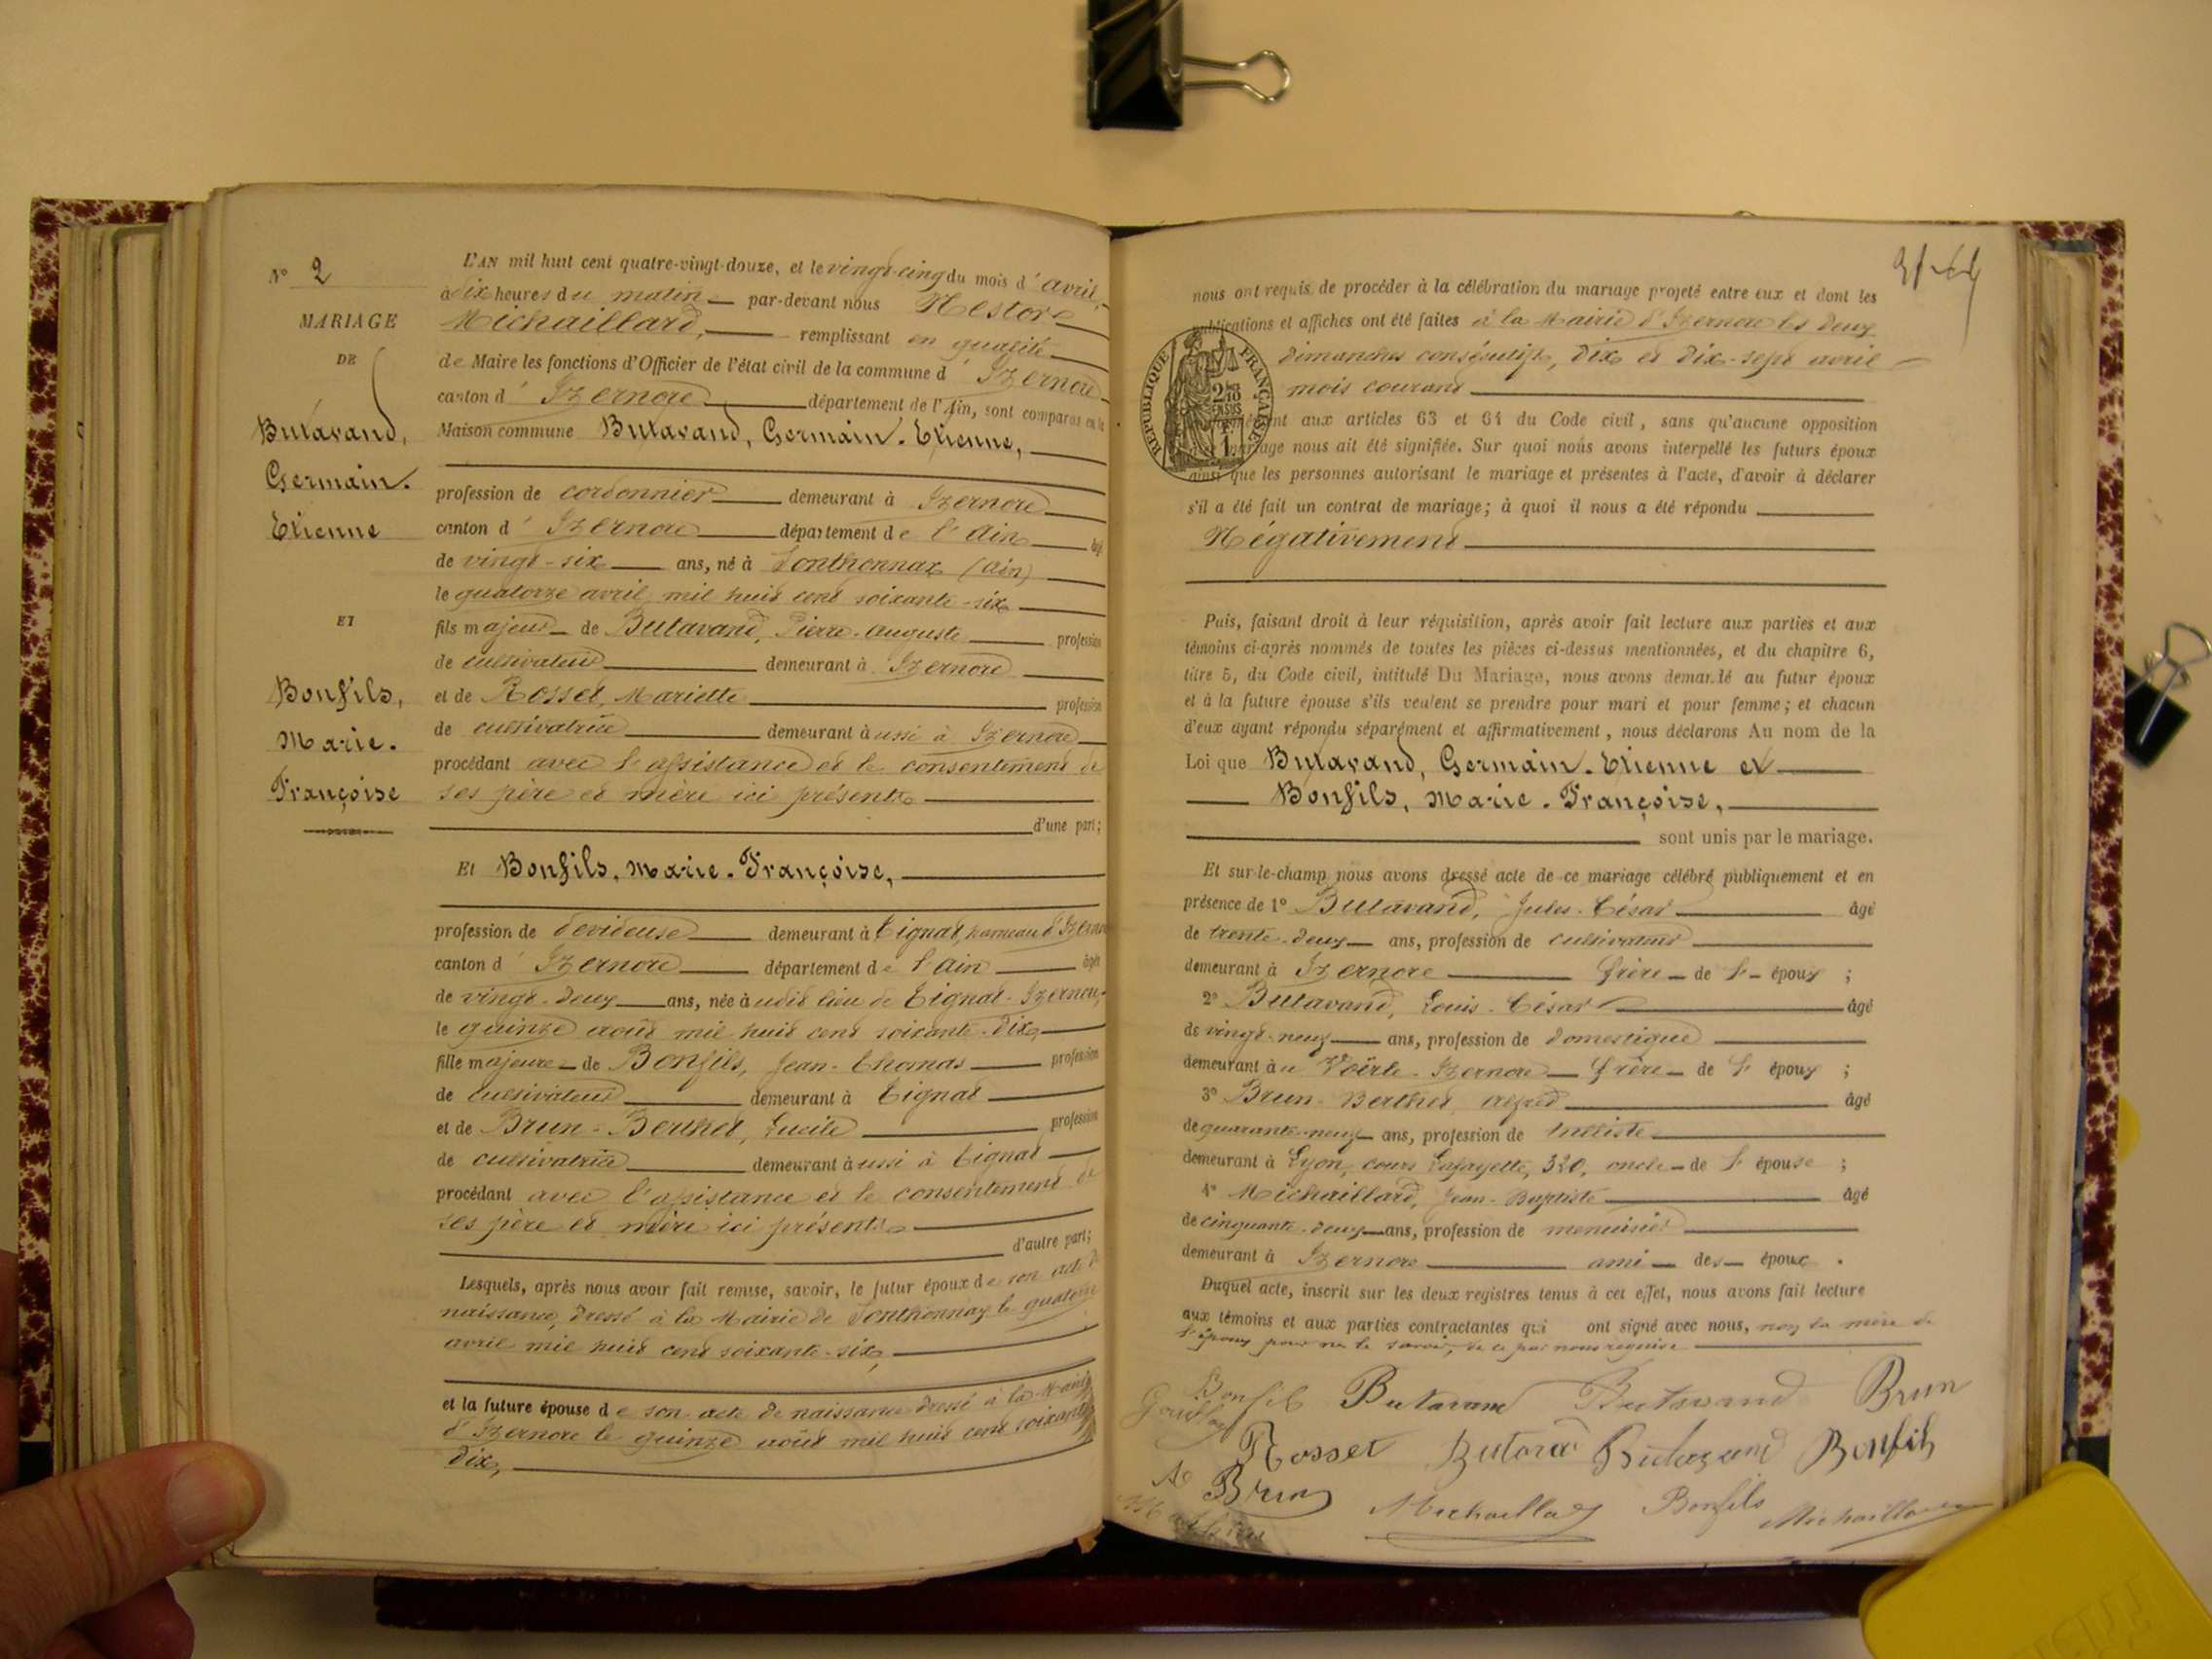 N° 2
MARIAGE
DE
Butavand,
Germain-
Etienne
ET
Bonfils,
Marie-
Françoise
L'AN mil huit cent quatre-vingt-douze, et le vingt-cinq du mois d'avril,
à dix heures du matin par-devant nous Nestor
Michaillard, remplissant en qualité
de Maire les fonctions d'Officier de l'état civil de la commune d'Izernore
canton d'Izernore département de l'Ain, sont comparus en la
Maison commune Butavand, Germain-Etienne,
profession de cordonnier demeurant à Izernore
canton d'Izernore département de l'Ain âgé
de vingt-six ans, né à Sonthonnax (Ain)
le quatorze avril mil huit cent soixante-six
fils majeur de Butavand, Pierre-Auguste profession
de cultivateur demeurant à Izernore
et de Rosset, Mariette profession
de cultivatrice demeurant aussi à Izernore
procédant avec l'assistance et le consentement de
ses père et mère ici présents
d'une part;
Et Bonfils, Marie-Françoise,
profession de dévideuse demeurant à Tignat, hameau d'Izernore
canton d'Izernore département de l'Ain âgée
de vingt-deux ans, née audit lieu de Tignat-Izernore,
le quinze août mil huit cent soixante-dix,
fille majeure de Bonfils, Jean-Thomas profession
de cultivateur demeurant à Tignat
et de Brun-Berthet, Lucile profession
de cultivatrice demeurant aussi à Tignat
procédant avec l'assistance et le consentement de
ses père et mère ici présents
d'autre part;
Lesquels, après nous avoir fait remise, savoir, le futur époux de son acte de
naissance, dressé à la Mairie de Sonthonnax le quatorze
avril mil huit cent soixante-six,
et la future épouse de son acte de naissance dressé à la Mairie
d'Izernore le quinze août mil huit cent soixante
dix,
nous ont requis de procéder à la célébration du mariage projeté entre eux et dont les
publications et affiches ont été faites à la Mairie d'Izernore les deux
dimanches consécutifs, dix et dix-sept avril
mois courant
RÉPUBLIQUE FRANÇAISE
aux articles 63 et 64 du Code civil, sans qu'aucune opposition
mariage nous ait été signifiée. Sur quoi nous avons interpellé les futurs époux
ainsi que les personnes autorisant le mariage et présentes à l'acte, d'avoir à déclarer
s'il a été fait un contrat de mariage; à quoi il nous a été répondu
Négativement
Puis, faisant droit à leur réquisition, après avoir fait lecture aux parties et aux
témoins ci-après nommés de toutes les pièces ci-dessus mentionnées, et du chapitre 6,
titre 5, du Code civil, intitulé Du Mariage, nous avons demandé au futur époux
et à la future épouse s'ils veulent se prendre pour mari et pour femme; et chacun
d'eux ayant répondu séparément et affirmativement, nous déclarons Au nom de la
Loi que Butavand, Germain-Etienne et
Bonfils, Marie-Françoise,
sont unis par le mariage.
Et sur-le-champ nous avons dressé acte de ce mariage célébré publiquement et en
présence de 1° Butavand, Jules-César âgé
de trente-deux ans, profession de cultivateur
demeurant à Izernore frère de l'époux;
2° Butavand, Louis-César âgé
de vingt-neuf ans, profession de domestique
demeurant au Voërle-Izernore frère de l'époux;
3° Brun-Berthet Alfred âgé
de quarante-neuf ans, profession de tulliste
demeurant à Lyon, cours Lafayette, 320, oncle de l'épouse;
4° Michaillard, Jean-Baptiste âgé
de cinquante-deux ans, profession de menuisier
demeurant à Izernore ami des époux.
Duquel acte, inscrit sur les deux registres tenus à cet effet, nous avons fait lecture
aux témoins et aux parties contractantes qui ont signé avec nous, non la mère de
l'époux pour ne le savoir, de ce par nous requise
Bonfils Butavand Butavand Brun
Rosset Butavand Bonfils
Brun Michaillard Bonfils Michaillard